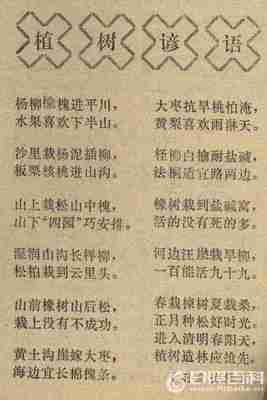 植树谚语
杨柳橡槐进平川，
水果喜欢下半山。
沙里栽杨泥插柳，
板栗核桃进山沟。
山上栽松山中槐，
山下“四园”巧安排。
湿润山沟长样柳，
松柏栽到云里头。
山前橡树山后松，
栽上没有不成功。
黄土沟崖嫁大枣，
海边宜长棉槐条。
大枣抗旱桃怕淹，
黄梨喜欢雨淋天。
柽柳白榆耐盐碱，
法桐适宜路两边。
橡树栽到盐碱窝，
活的没有死的多。
河边汪崖栽旱柳，
一百能活九十九。
春栽樟树夏栽桑，
正月种松好时光。
进入清明春阳天，
植树造林应抢先。
百科